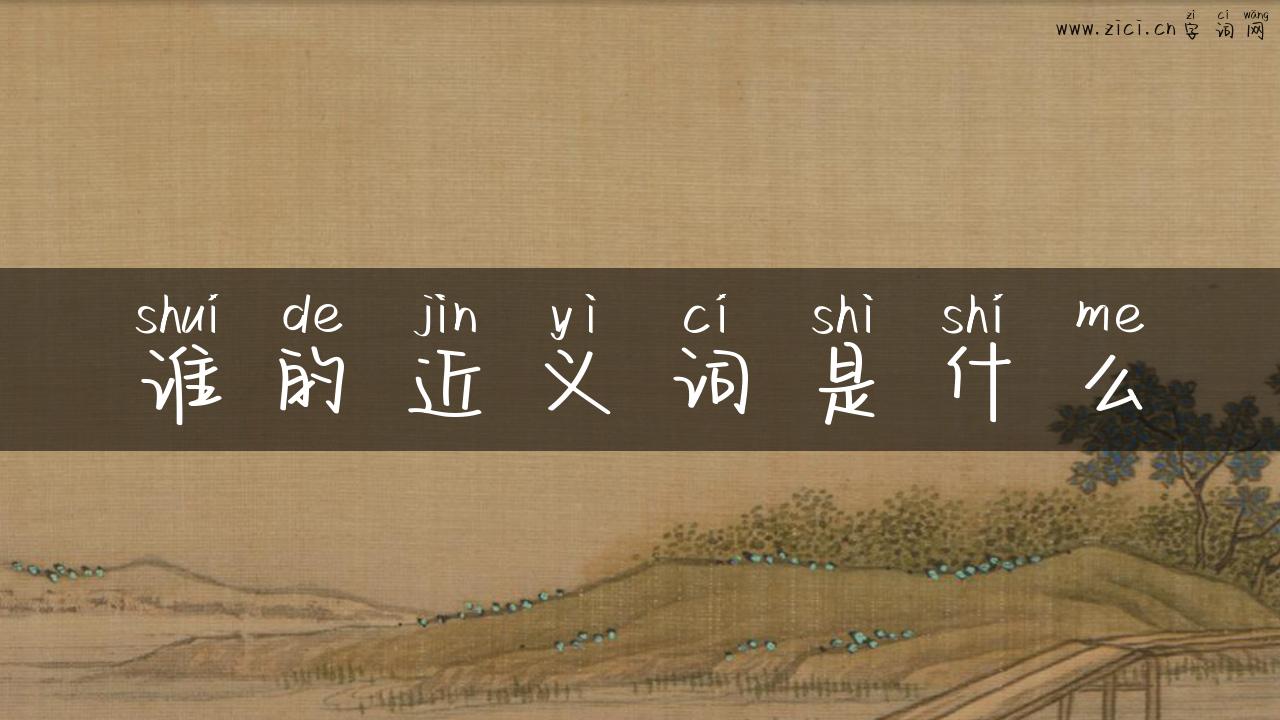 zì cí wǎng
www.zici.cn字词网
shuí de jìn yì cí shì shí me
谁的近义词是什么